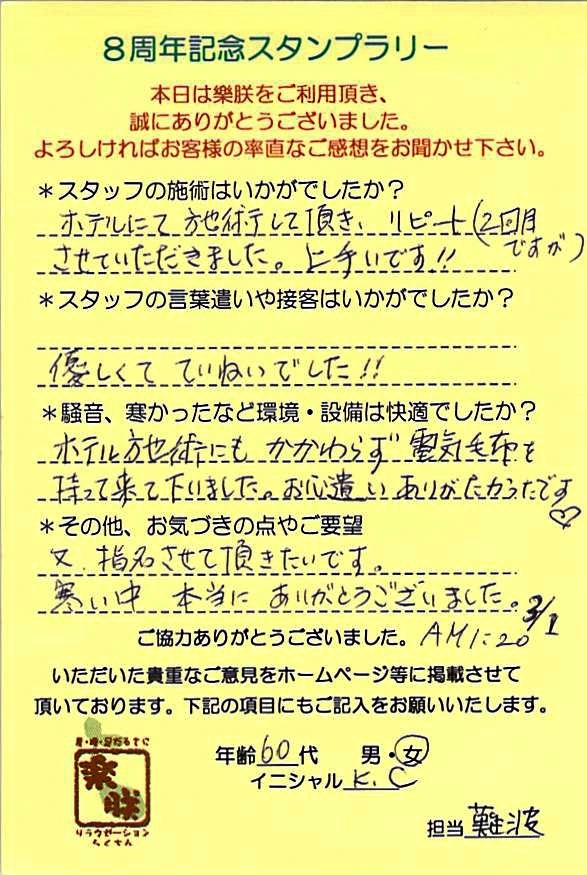 8周年記念スタンプラリー
本日は樂朕をご利用頂き、
誠にありがとうございました。
よろしければお客様の率直なご感想をお聞かせ下さい。
＊スタッフの施術はいかがでしたか？
ホテルにて施術して頂き、リピート(2回目
ですが)
させていただきました。上手いです!!
＊スタッフの言葉遣いや接客はいかがでしたか？
優しくて ていねいでした!!
＊騒音、寒かったなど環境・設備は快適でしたか？
ホテル施術にもかかわらず 電気毛布を
持って来て下いました。お心遣い ありがたかったです♡
＊その他、お気づきの点やご要望
又、指名させて頂きたいです。
寒い中 本当に ありがとうございました。
3/1
ご協力ありがとうございました。AM1:20
いただいた貴重なご意見をホームページ等に掲載させて
頂いております。下記の項目にもご記入をお願いいたします。
年齢60代 男・女
イニシャル K.C
楽朕
リラクゼーション
らくちん
担当 難波